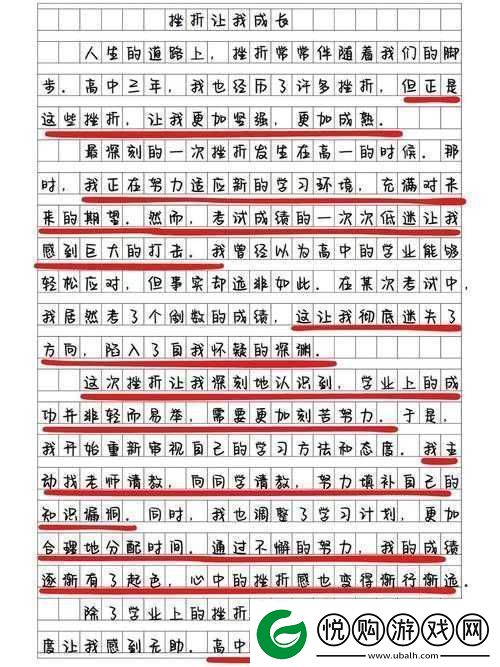 挫折让我成长
人生的道路上，挫折常常伴随着我们的脚
步．高中三年，我也经历了许多挫折，但正是
这些挫折，让我更加坚强，更加成熟．
最深刻的一次挫折发生在高一的时候．那
时，我正在努力适应新的学习环境，充满对未
来的期望．然而，考试成绩的一次次低迷让我
感到巨大的打击．我曾经以为高中的学业能够
轻松应对，但事实却远非如此．在某次考试中，
我居然考了个倒数的成绩，这让我彻底迷失了
方向，陷入了自我怀疑的深渊．
这次挫折让我深刻地认识到，学业上的成
功并非轻而易举，需要更加刻苦努力．于是，
我开始重新审视自己的学习方法和态度．我主
动找老师请教，向同学请教，努力填补自己的
知识漏洞．同时，我也调整了学习计划，更加
合理地分配时间．通过不懈的努力，我的成绩
逐渐有了起色，心中的挫折感也变得渐行渐远．
除了学业上的挫折
度让我感到无助．高中
悦购游戏网
www.ubalh.com